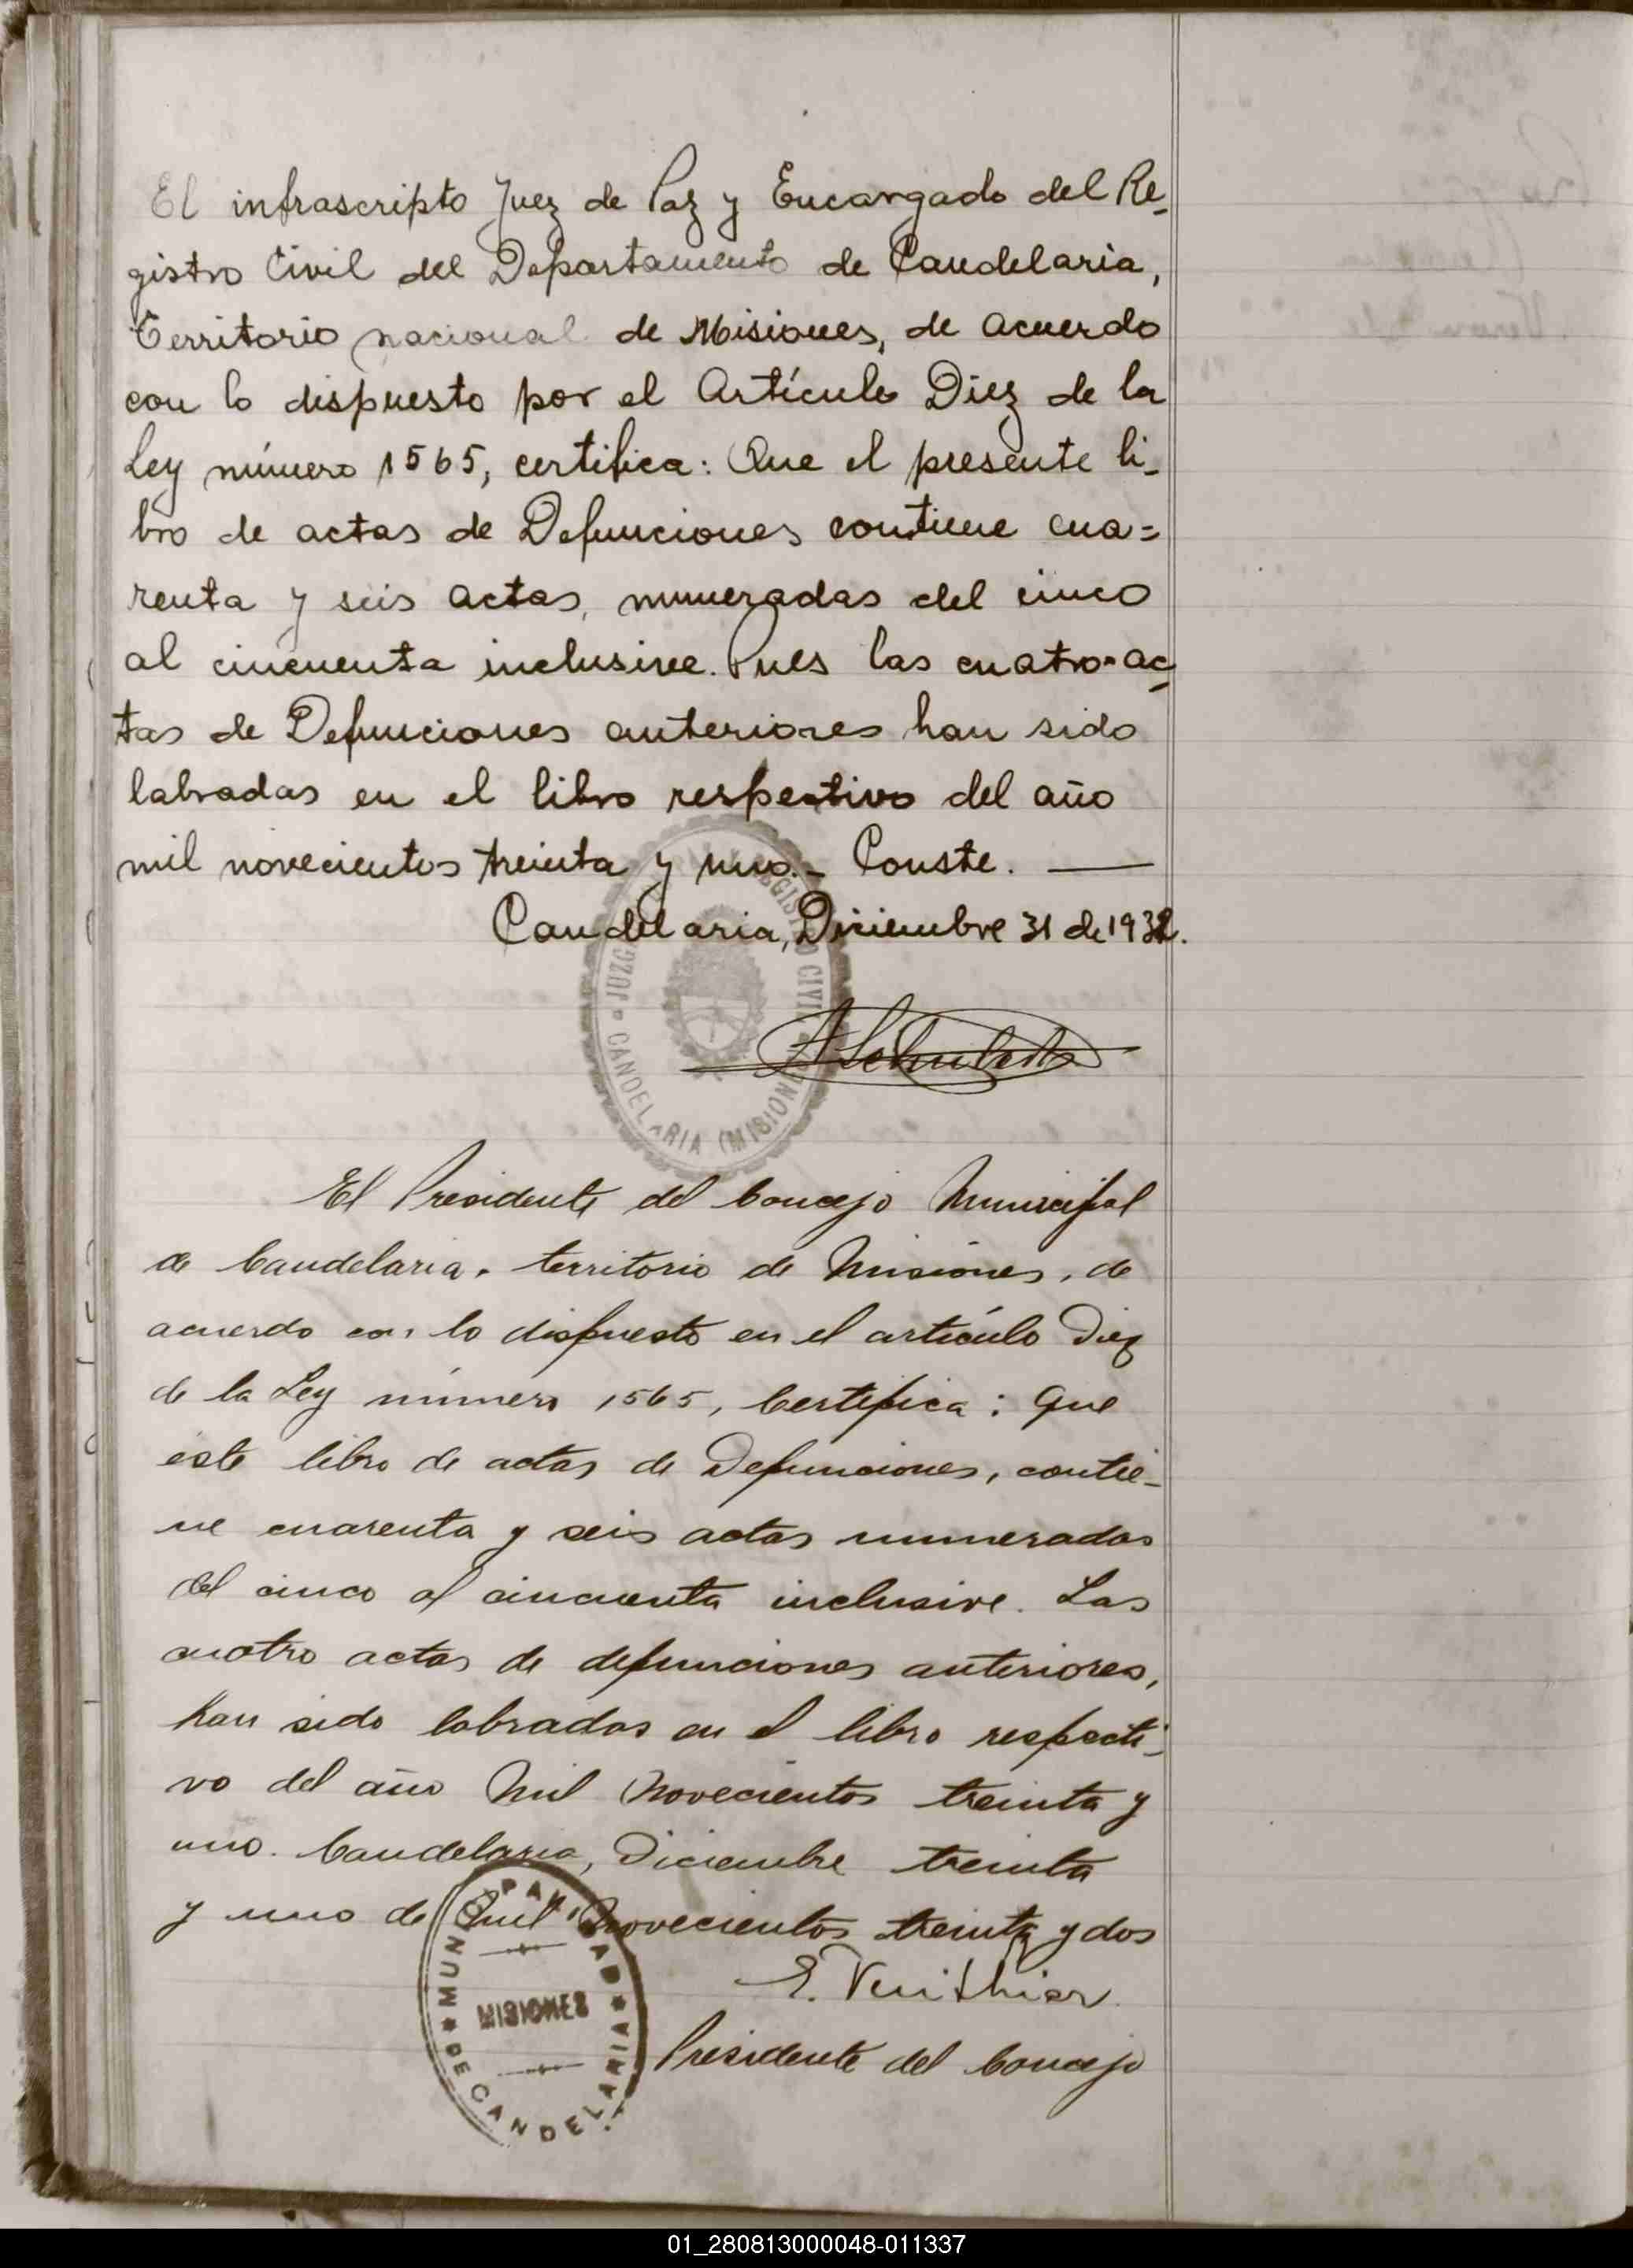 El infrascripto Juez de Paz y Encargado del Re-
gistro Civil del Departamento de Candelaria,
Territorio nacional de Misiones, de acuerdo
con lo dispuesto por el Artículo Diez de la
Ley número 1565, certifica: Que el presente li-
bro de actas de Defunciones contiene cua=
renta y seis actas, numeradas del cinco
al cincuenta inclusive. Pues las cuatro ac-
tas de Defunciones anteriores han sido
labradas en el libro respectivo del año
mil novecientos treinta y uno.- Conste. —
Candelaria, Diciembre 31 de 1932.
JUZG REGISTRO CIVIL CANDELARIA (MISIONES
El Presidente del Concejo Municipal
de Candelaria, territorio de Misiones, de
acuerdo con lo dispuesto en el artículo Diez
de la Ley número 1565, Certifica: Que
éste libro de actas de Defunciones, contie-
ne cuarenta y seis actas numeradas
del cinco al cincuenta inclusive. Las
cuatro actas de defunciones anteriores,
han sido labradas en el libro respecti-
vo del año Mil Novecientos treinta y
uno. Candelaria, Diciembre treinta
y uno de Mil Novecientos treinta y dos
MUNICIPALIDAD DE CANDELARIA
MISIONES
Presidente del Concejo
01_280813000048-011337